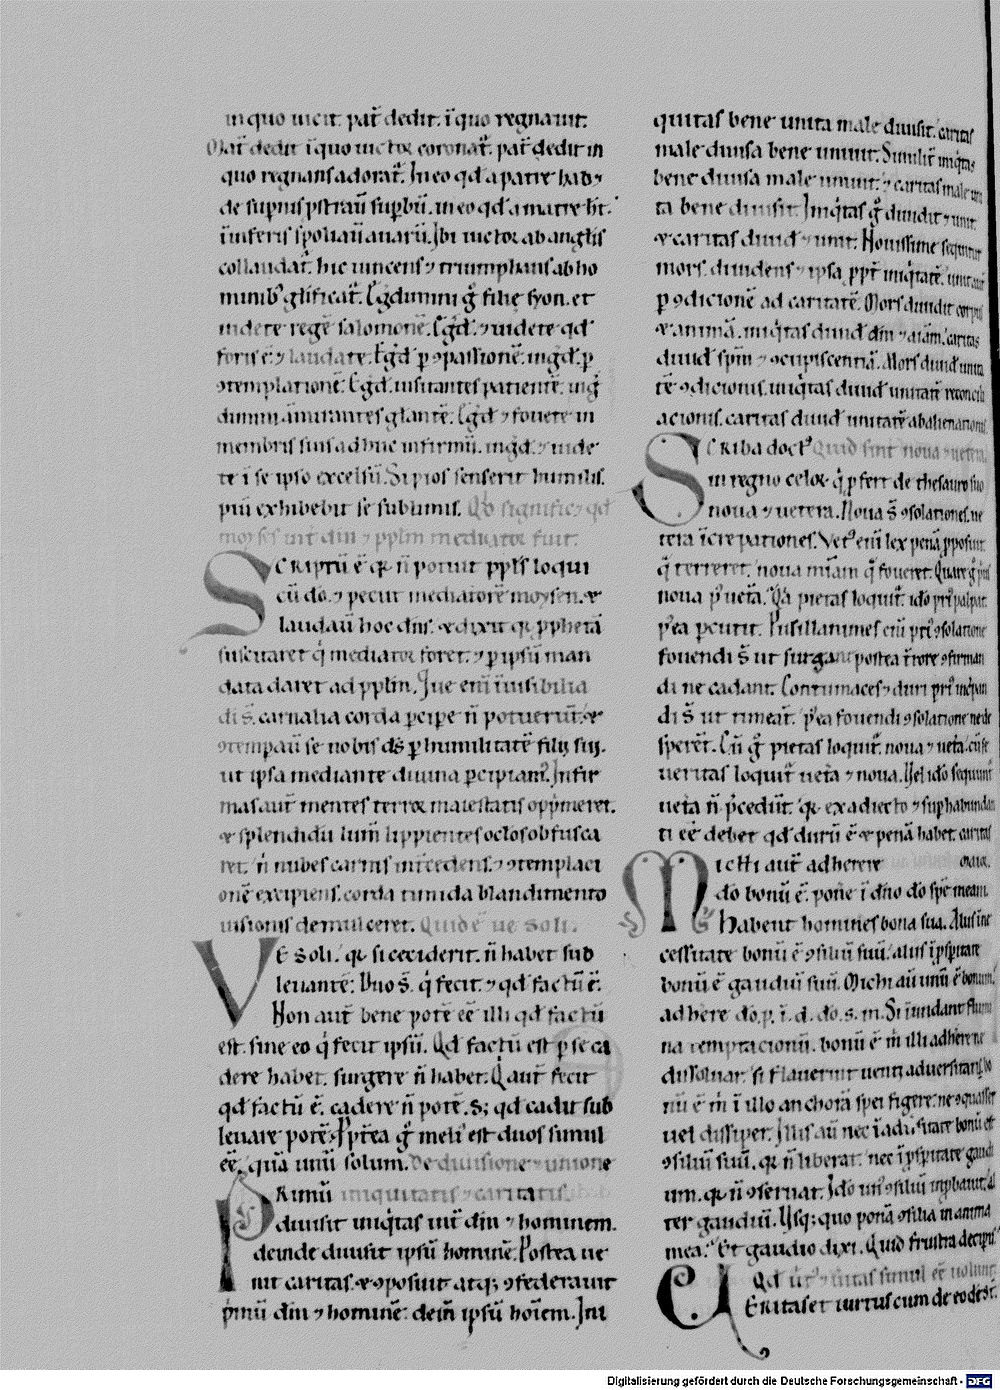 in quo uicit. pat̄ dedit. ī quo regnauit.
Mat̄ dedit ī quo uictor coronat᷑. pat̄ dedit in
quo regnans adorat᷑. In eo qd̄ a patre hab;
de supnis pstrauī supbū. in eo qd̄ a matre ht̄.
ī inferis spoliauī auarū. Ibi uictor ab angl̄is
collaudat᷑. hic uincens ⁊ triumphans ab ho
minib; gl̄ificat᷑. Egd̄imini g̊ filie syon. et
uidete regē salomonē. Egd̄. ⁊ uidete qd̄
foris ē. ⁊ laudate. Egd̄ p ꝯpassionē. ingd̄. p
ꝯtemplationē. Egd̄. uisitantes patientē. ingd̄
dimini āmirantes gl̄antē. Egd̄ ⁊ fouete in
membris suis adhuc infirmū. ingd̄. ⁊ uide
te ī se ipso excelsū. Si pios senserit humilis.
piū exhibebit se sublimis. Qd significet qd
moyses int̄ dm̄ ⁊ pplm̄ mediator fuit.
SCRIPTŪ ē. qr n̄ potuit ppl̄s loqui
cū do. ⁊ peciit mediatorē moysen. ⁊
laudauī hoc dns. ⁊ dixit qr pphetā
suscitaret q̇ mediator foret. ⁊ p ipsū man
data daret ad pplm̄. Que enī īuisibilia
di s̄. carnalia corda pcipe n̄ potuerūt. ⁊
ꝯtempauī se nobis ds̄ p humilitatē filij sui.
ut ipsa mediante diuina pcipiant᷑. Infir
mas aut̄ mentes terror maiestatis opp̄meret.
⁊ splendidū lum̄ lippientes oclos obfusca
ret. n̄ nubes carnis int̄cedens. ⁊ ꝯtemplati
onē excipiens. corda timida blandimento
uisionis demulceret. Quid ē ue soli.
VE soli. qr si ceciderit. n̄ habet sub
leuantē: Duo s̄. q̇ fecit. ⁊ qd̄ factū ē.
Non aut̄ bene potē eē illi qd̄ factū
est. sine eo q̇ fecit ipsū. Qd̄ factū est p se ca
dere habet. surgere n̄ habet. Q̇ aut̄ fecit
qd̄ factū ē. cadere n̄ potē. s; qd̄ cadit sub
leuare potē. Ppt̄ea g̊ meli᷒ est duos simul
eē. quā unū solum. De diuisione ⁊ unione
PRIMŪ iniquitatis ⁊ caritatis.
diuisit iniq̇tas int̄ dm̄ ⁊ hominem.
deinde diuisit ipsū hominē. Postea ue
nit caritas. ⁊ ꝯposuit atq; ꝯfederauit
p̄mū dm̄ ⁊ hominē. dein̄ ipsū hoīem. Ini
quitas bene unita male diuisit. caritas
male diuisa bene uniuit. Similit̄ iniq̇tas
bene diuisa male uniuit. ⁊ caritas male uni
ta bene diuisit. Iniq̇tas g̊ diuidit ⁊ unit.
⁊ caritas diuid̄ ⁊ unit. Nouissime sequitur
mors. diuidens ⁊ ipsa. ppt̄ iniq̇tatē. unit aut̄
p ꝯdicionē ad caritatē. Mors diuidit corpus
⁊ animā. iniq̇tas diuid̄ dm̄ ⁊ aīam. caritas
diuid̄ spm̄ ⁊ ꝯcupiscentiā. Mors diuid̄ unita
tē ꝯdicionis. iniq̇tas diuid̄ unitatē reconcili
ationis. caritas diuid̄ unitatē abalienationis.
SCRIBA doct᷒ Quid sint noua ⁊ uetera.
in regno celor q̇ pfert de thesauro suo
noua ⁊ uetera. Noua s̄ ꝯsolationes. ue
tera īcrepationes. Vet᷒ enī lex penā pposuit
q̄ terreret. noua mīam q̄ foueret. Quare g̊ p̄us
noua p᷒ uet̄a. Qa pietas loquit᷑. ido p̄us palpat.
p᷒ea pcutit. Pusillanimes enī p̄us ꝯsolatione
fouendi s̄ ut surgant postea t̄rore ꝯfirman
di ne cadant. Contumaces ⁊ duri p̄us increpan
di s̄ ut timeāt. p᷒ea fouendi ꝯsolatione ne de
sperēt. Cū g̊ pietas loquit᷑. noua ⁊ uet̄a. cū se
ueritas loquit᷑ uet̄a ⁊ noua. Vel ido sequunt᷑
uet̄a n̄ p̄cedūt. qr ex adiecto ⁊ suphabundan
ti eē debet qd̄ durū ē ⁊ penā habet. caritas
MICHI aut̄ adherere
do bonū ē. ponē ī dn̄o do spē meam.
Habent homines bona sua. Alius in ne
cessitate bonū ē ꝯsiliū suū. alius ī psp̄itate
bonū ē gaudiū suū. Michi aū unū ē bonum.
adhere do. p. ī. d. do. s. m. Si īundant flumi
na temptacionū. bonū ē m̄ illi adhere ne
dissoluar. si flauerint uenti aduersitatis. bo
nū ē m̄ ī illo anchorā spei figere. ne ꝯquasser
uel dissiper. Illis aū nec ī adūsitate bonū est
ꝯsiliū suū. qr n̄ liberat. nec ī psp̄itate gaudi
um. qr n̄ ꝯseruat. Ido un᷒ ꝯsiliū inpbauit. al
ter gaudiū. Vsq; quo ponā ꝯsilia in anima
mea. Et gaudio dixi. Quid frustra deciperis.
Qd̄ ūt᷒ ⁊ ūitas simul eē uolunt.
VERITAS et uirtus cum de eodē st̄.
Digitalisierung gefördert durch die Deutsche Forschungsgemeinschaft - DFG